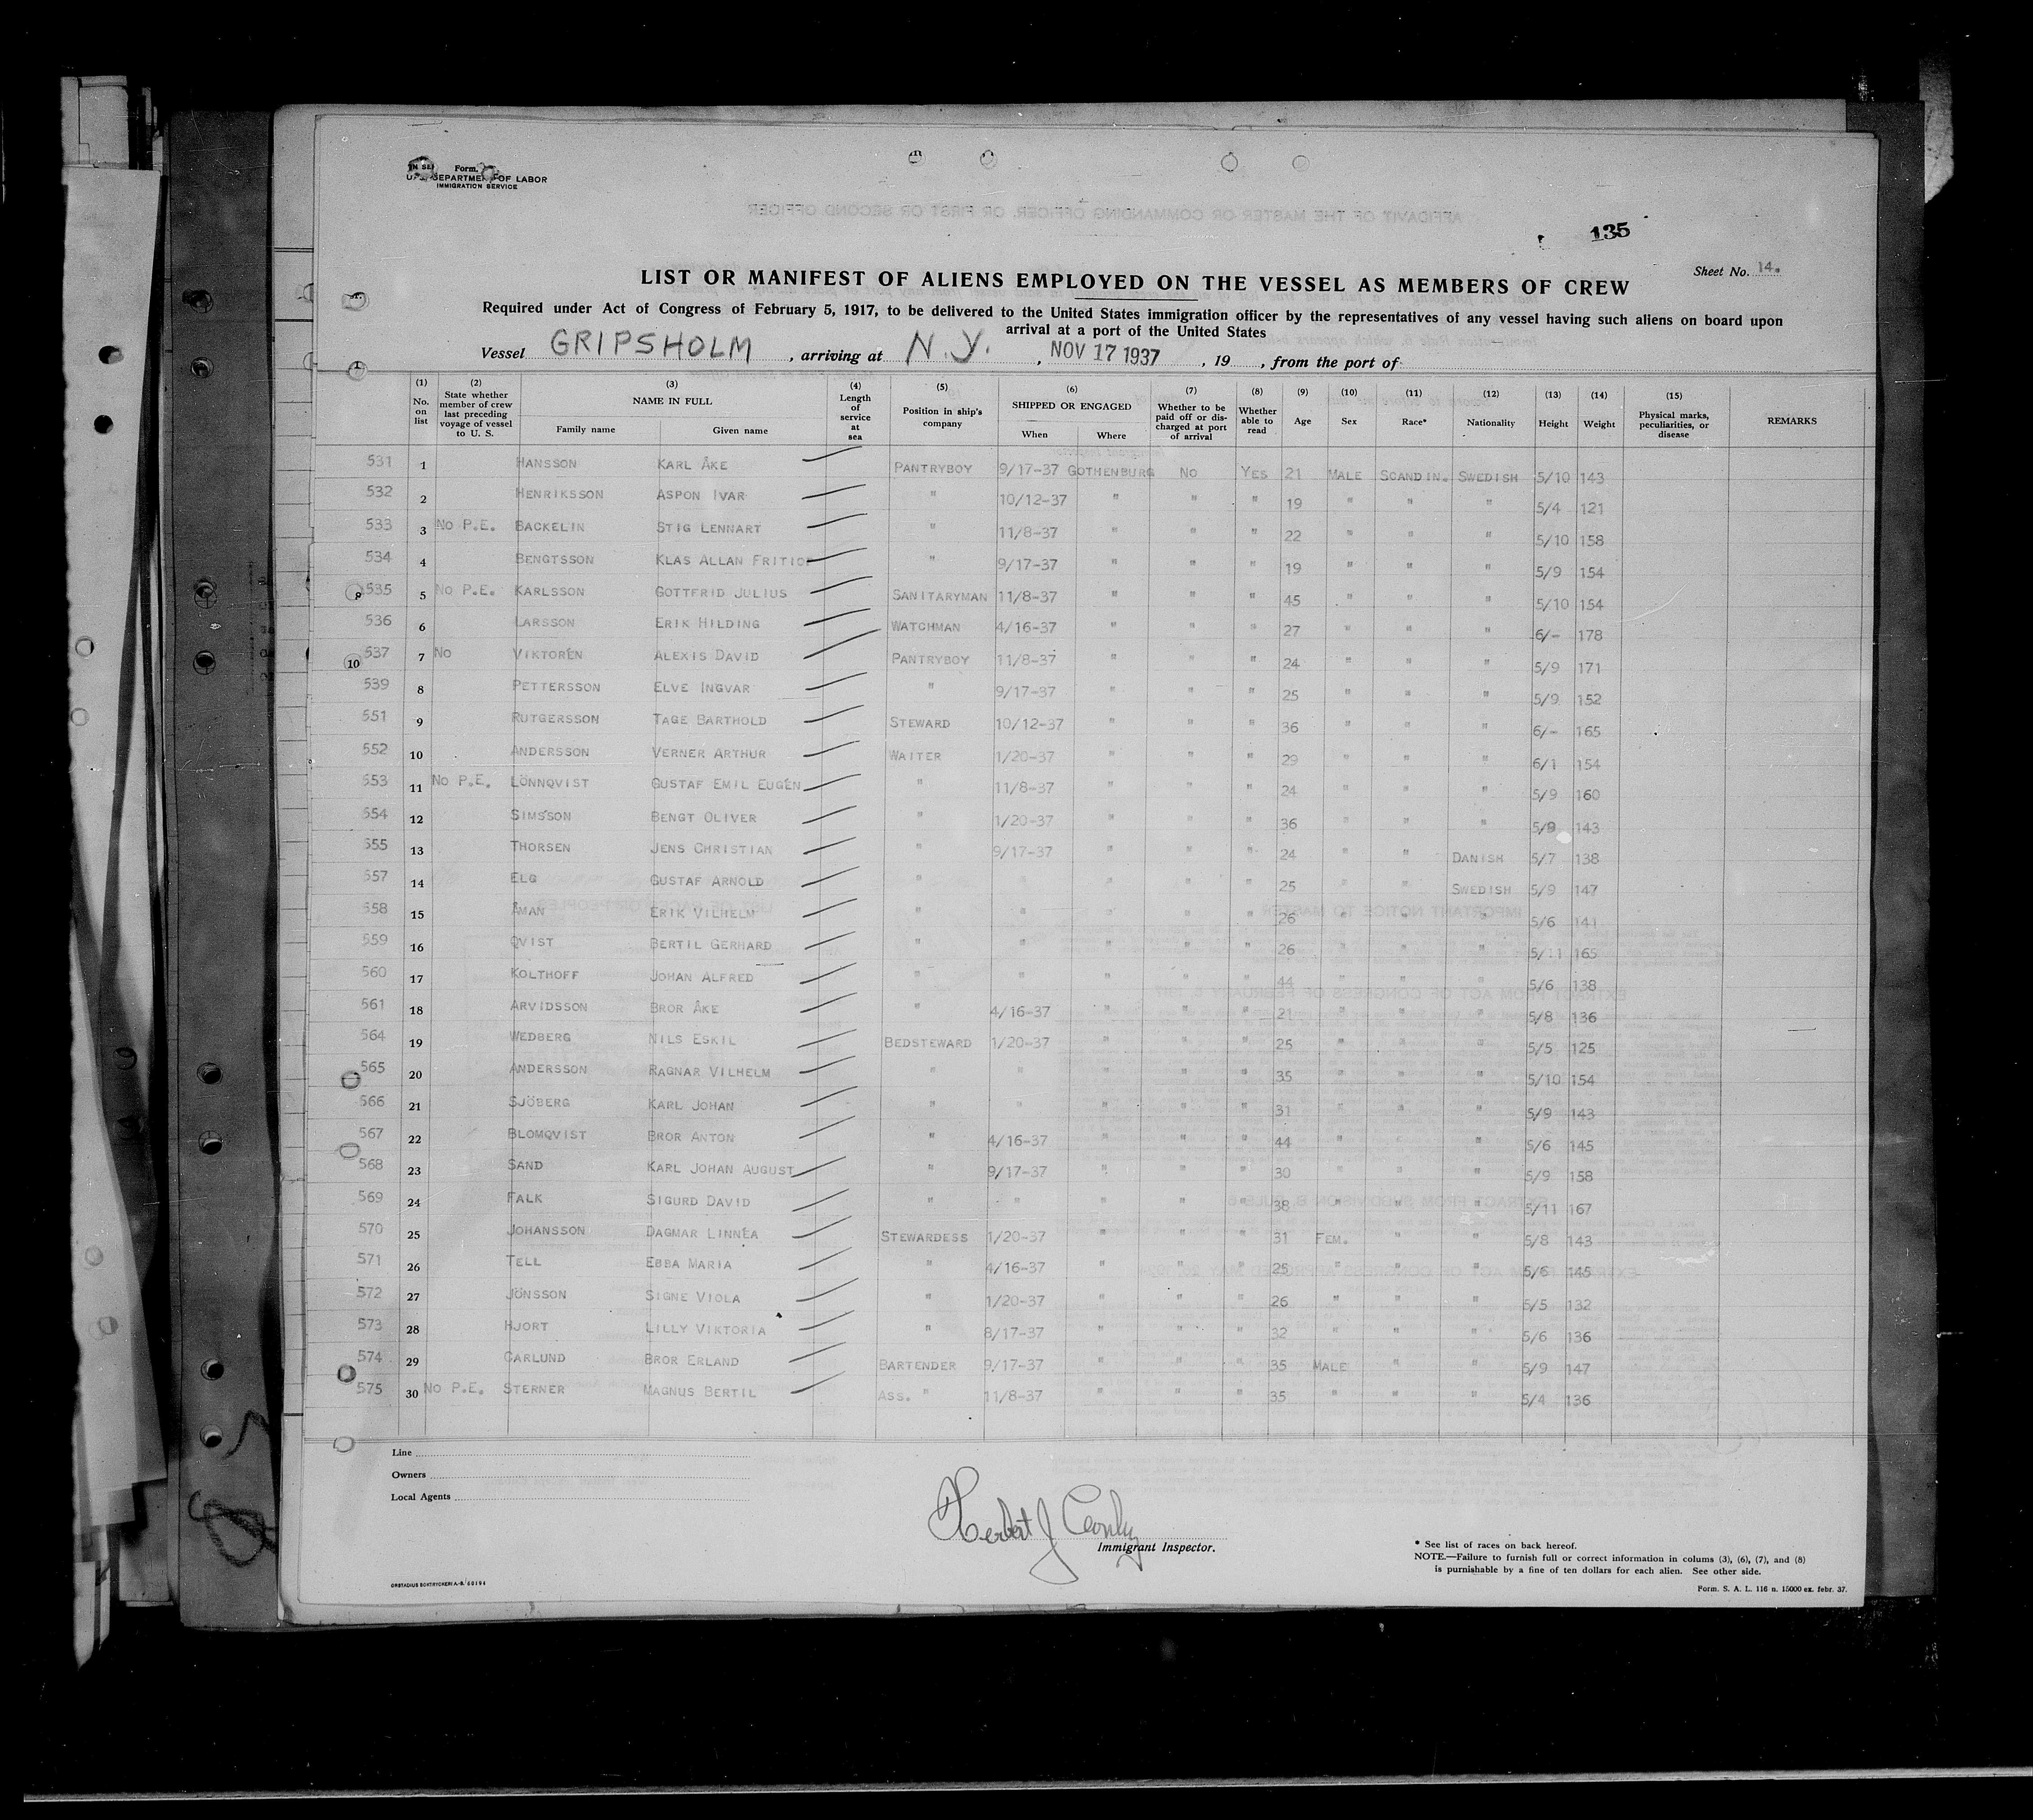 Form.
U. S. DEPARTMENT OF LABOR
IMMIGRATION SERVICE
135
Sheet No. 14.
LIST OR MANIFEST OF ALIENS EMPLOYED ON THE VESSEL AS MEMBERS OF CREW
Required under Act of Congress of February 5, 1917, to be delivered to the United States immigration officer by the representatives of any vessel having such aliens on board upon
arrival at a port of the United States
Vessel GRIPSHOLM, arriving at N.Y., NOV 17 1937, 19, from the port of
(1) No. on list (2) State whether member of crew last preceding voyage of vessel to U. S. (3) NAME IN FULL Family name Given name (4) Length of service at sea (5) Position in ship's company (6) SHIPPED OR ENGAGED When Where (7) Whether to be paid off or discharged at port of arrival (8) Whether able to read (9) Age (10) Sex (11) Race* (12) Nationality (13) Height (14) Weight (15) Physical marks, peculiarities, or disease REMARKS
531 1 HANSSON KARL ÅKE PANTRYBOY 9/17-37 GOTHENBURG NO YES 21 MALE SCANDIN. SWEDISH 5/10 143
532 2 HENRIKSSON ASPON IVAR " 10/12-37 " " " 19 " " " 5/4 121
533 3 NO P.E. BACKELIN STIG LENNART " 11/8-37 " " " 22 " " " 5/10 158
534 4 BENGTSSON KLAS ALLAN FRITIOF " 9/17-37 " " " 19 " " " 5/9 154
535 5 NO P.E. KARLSSON GOTTFRID JULIUS SANITARYMAN 11/8-37 " " " 45 " " " 5/10 154
536 6 LARSSON ERIK HILDING WATCHMAN 4/16-37 " " " 27 " " " 6/- 178
10 537 7 NO VIKTORÉN ALEXIS DAVID PANTRYBOY 11/8-37 " " " 24 " " " 5/9 171
539 8 PETTERSSON ELVE INGVAR " 9/17-37 " " " 25 " " " 5/9 152
551 9 RUTGERSSON TAGE BARTHOLD STEWARD 10/12-37 " " " 36 " " " 6/- 165
552 10 ANDERSSON VERNER ARTHUR WAITER 1/20-37 " " " 29 " " " 6/1 154
553 11 NO P.E. LÖNNQVIST GUSTAF EMIL EUGÉN " 11/8-37 " " " 24 " " " 5/9 160
554 12 SIMSSON BENGT OLIVER " 1/20-37 " " " 36 " " " 5/9 143
555 13 THORSEN JENS CHRISTIAN " 9/17-37 " " " 24 " " DANISH 5/7 138
557 14 ELG GUSTAF ARNOLD " " " " " 25 " " SWEDISH 5/9 147
558 15 ÅMAN ERIK VILHELM " " " " " 26 " " " 5/6 141
559 16 QVIST BERTIL GERHARD " " " " " 26 " " " 5/11 165
560 17 KOLTHOFF JOHAN ALFRED " " " " " 44 " " " 5/6 138
561 18 ARVIDSSON BROR ÅKE " 4/16-37 " " " 21 " " " 5/8 136
564 19 WEDBERG NILS ESKIL BEDSTEWARD 1/20-37 " " " 25 " " " 5/5 125
565 20 ANDERSSON RAGNAR VILHELM " " " " " 35 " " " 5/10 154
566 21 SJÖBERG KARL JOHAN " " " " " 31 " " " 5/9 143
567 22 BLOMQVIST BROR ANTON " 4/16-37 " " " 44 " " " 5/6 145
568 23 SAND KARL JOHAN AUGUST " 9/17-37 " " " 30 " " " 5/9 158
569 24 FALK SIGURD DAVID " " " " " 38 " " " 5/11 167
570 25 JOHANSSON DAGMAR LINNÉA STEWARDESS 1/20-37 " " " 31 FEM. " " 5/8 143
571 26 TELL EBBA MARIA " 4/16-37 " " " 25 " " " 5/6 145
572 27 JÖNSSON SIGNE VIOLA " 1/20-37 " " " 26 " " " 5/5 132
573 28 HJORT LILLY VIKTORIA " 8/17-37 " " " 32 " " " 5/6 136
574 29 CARLUND BROR ERLAND BARTENDER 9/17-37 " " " 35 MALE " " 5/9 147
575 30 NO P.E. STERNER MAGNUS BERTIL ASS. " 11/8-37 " " " 35 " " " 5/4 136
Line
Owners
Local Agents
Immigrant Inspector.
* See list of races on back hereof.
NOTE.—Failure to furnish full or correct information in colums (3), (6), (7), and (8)
is purnishable by a fine of ten dollars for each alien. See other side.
Form. S. A. L. 116 n. 15000 ex. febr. 37.